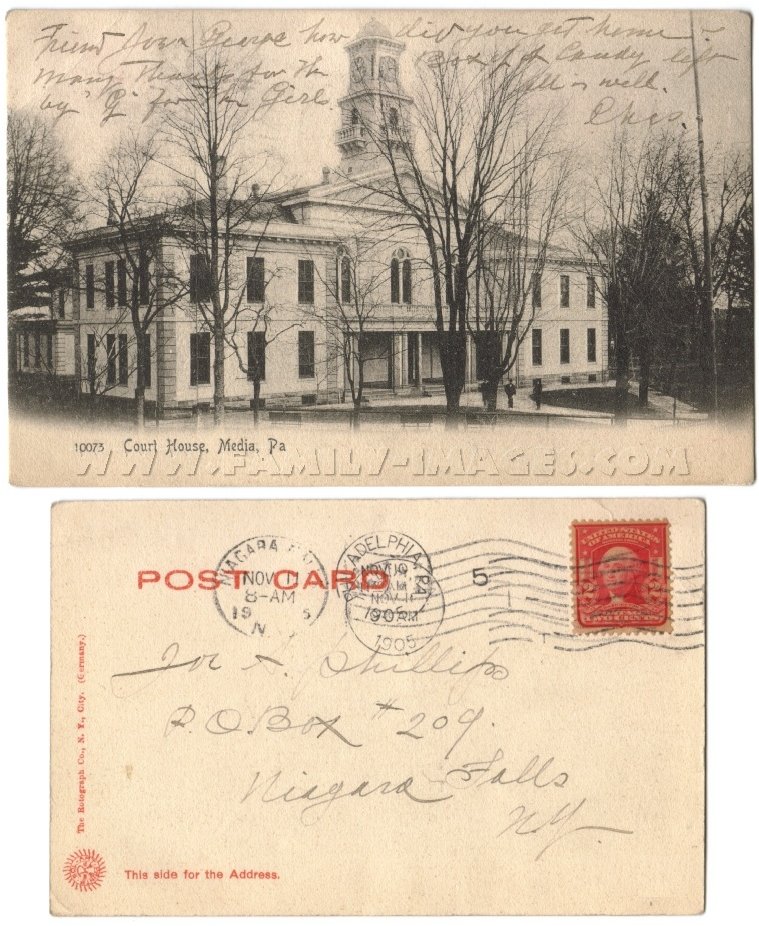 Friend Joe & George how did you get home -
Many thanks for the Box of Candy left
by "G" for the Girls all is well.
Chas.
10073 Court House, Media, Pa
WWW.FAMILY-IMAGES.COM
POST CARD
NIAGARA
NOV 11
8-AM
19 5
N
PHILADELPHIA, PA
NOV 10
1905
5
UNITED STATES
OF AMERICA
TWO CENTS
Joe S. Phillips
P.O. Box #209.
Niagara Falls
N.Y.
The Rotograph Co., N. Y., City. (Germany.)
This side for the Address.